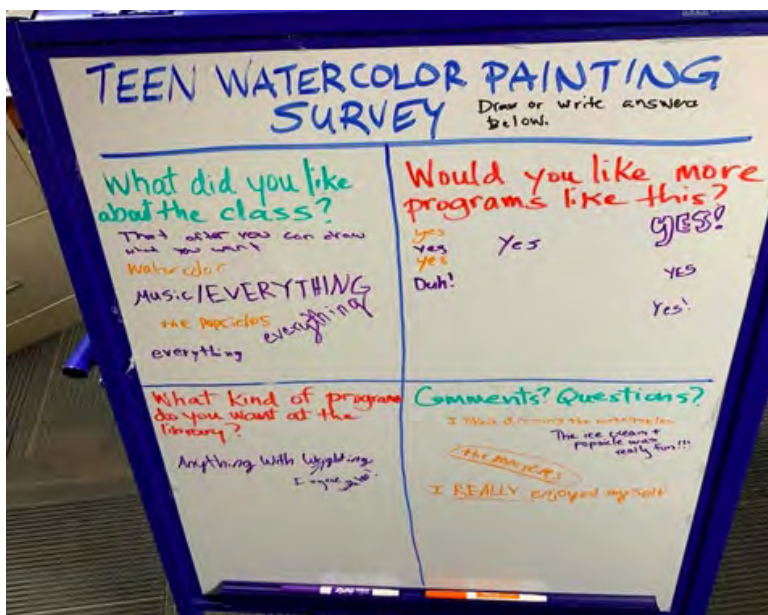 TEEN WATERCOLOR PAINTING
SURVEY
Draw or write answers
below.
What did you like
about the class?
That after you can draw
what you want
watercolor
Music/EVERYTHING
the popsicles
everything
everything
Would you like more
programs like this?
yes
Yes
yes
Duh!
Yes
YES!
YES
Yes!
What kind of programs
do you want at the
library?
Anything with
I agree
Comments? Questions?
I
the
The ice cream +
popsicle was
really fun!!!
I REALLY enjoyed myself